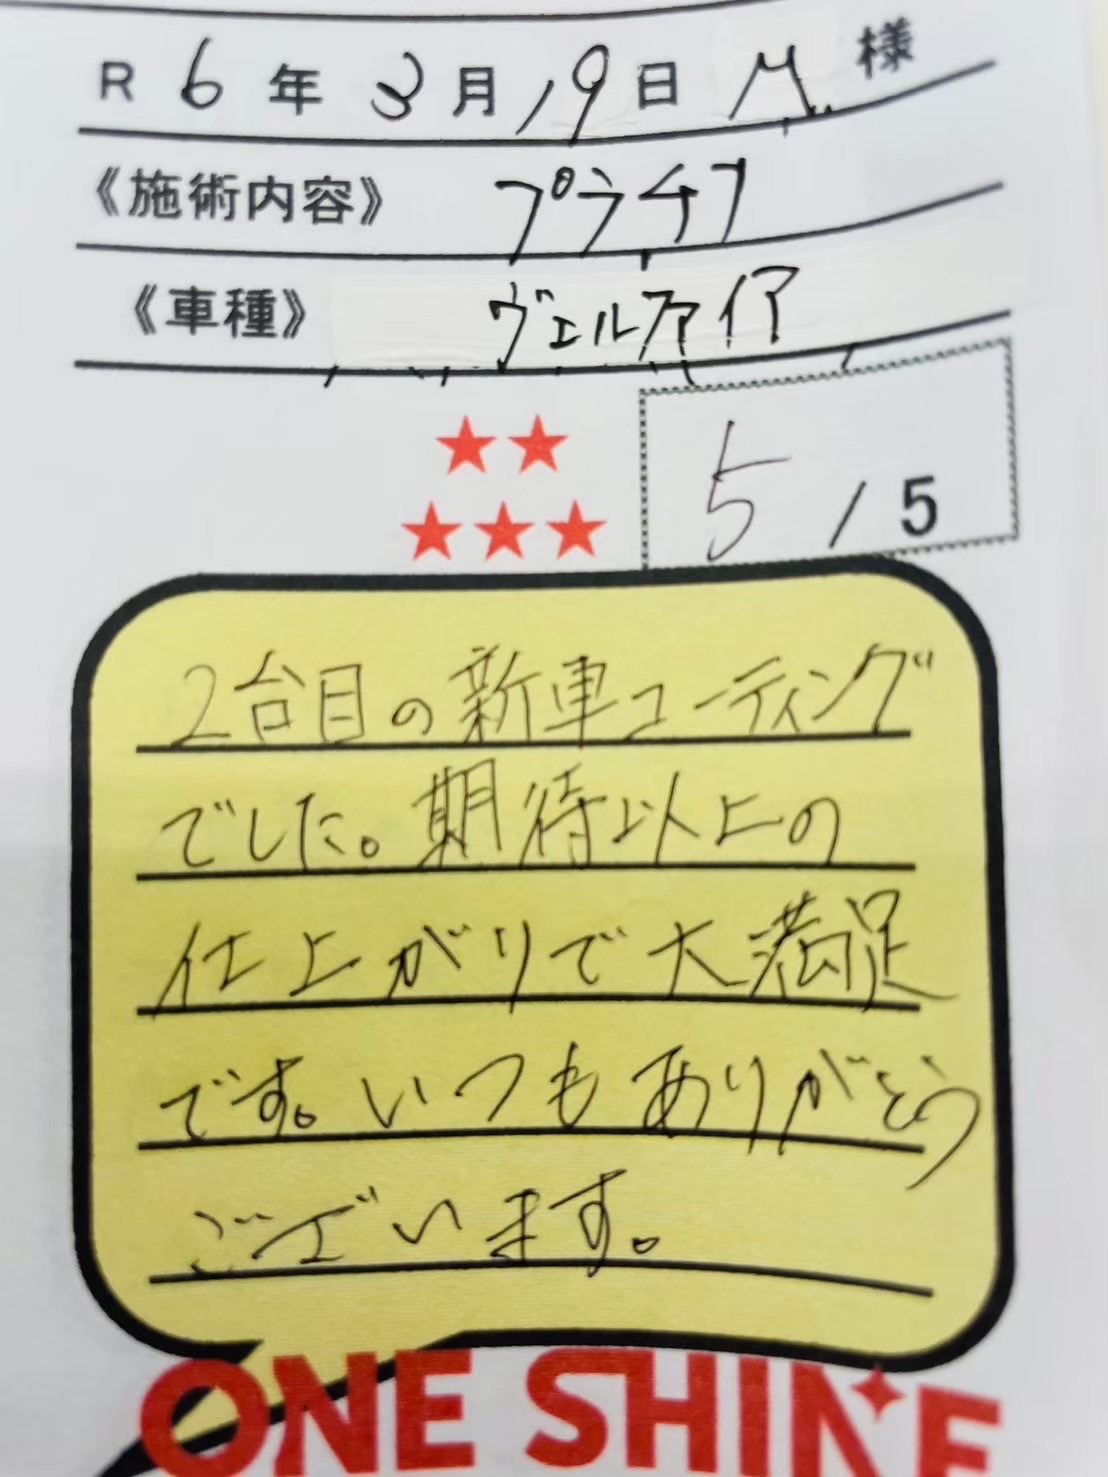 R 6年 3月 19日 M 様
《施術内容》 プラチナ
《車種》 ヴェルファイア
5 / 5
2台目の新車コーティング
でした。期待以上の
仕上がりで大満足
です。いつもありがとう
ございます。
ONE SHINE